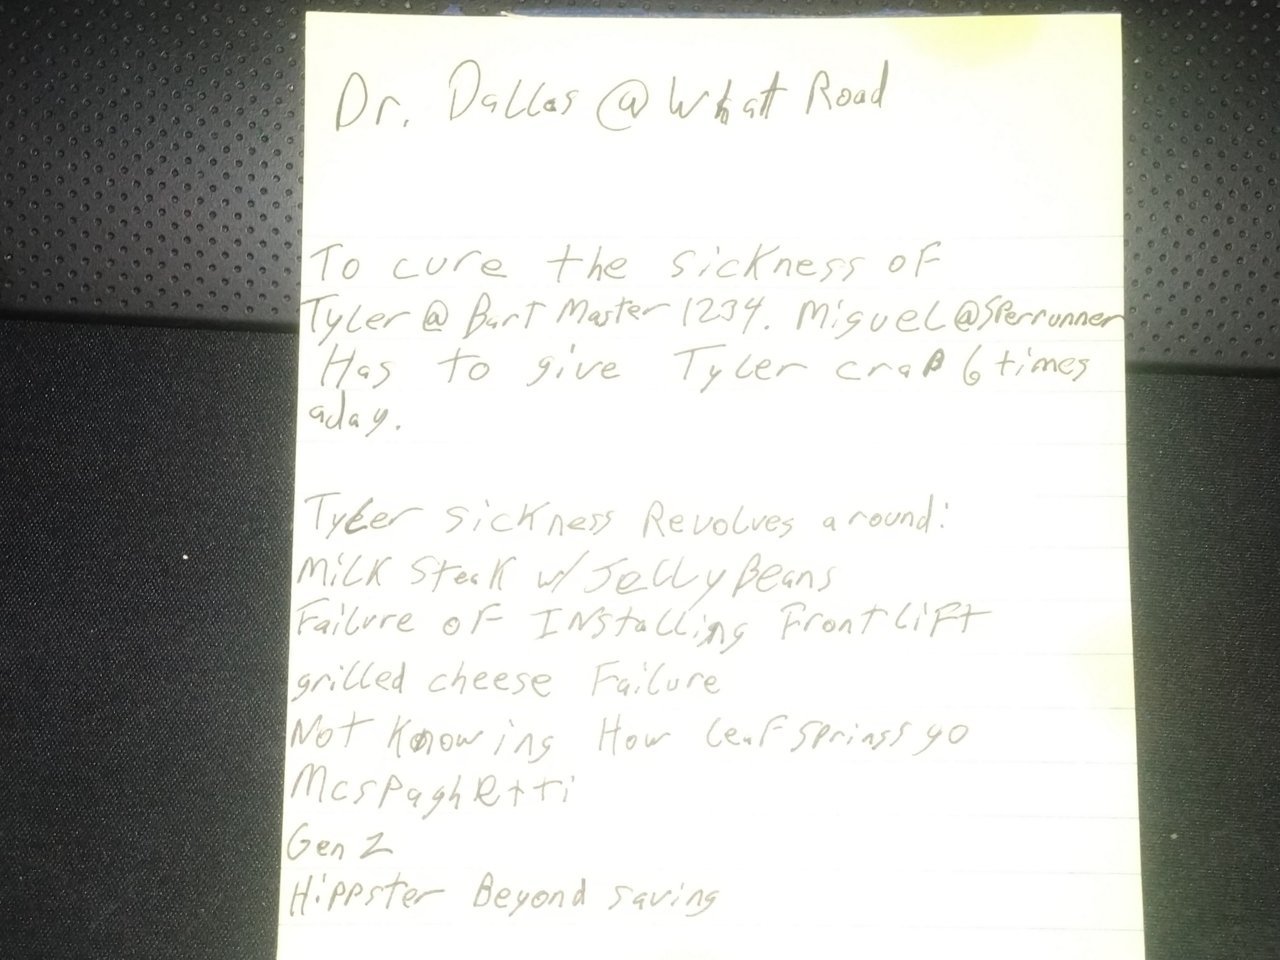 Dr. Dallas @ Whatt Road
To cure the sickness of
Tyler @ BartMaster1234. Miguel @Sperrunner
Has to give Tyler crap 6 times
aday.
Tyler sickness Revolves around:
Milk Steak w/ Jelly Beans
Failure of Installing Front lift
grilled cheese Failure
Not Knowing How leaf springs go
McSpaghetti
Gen Z
Hippster Beyond saving